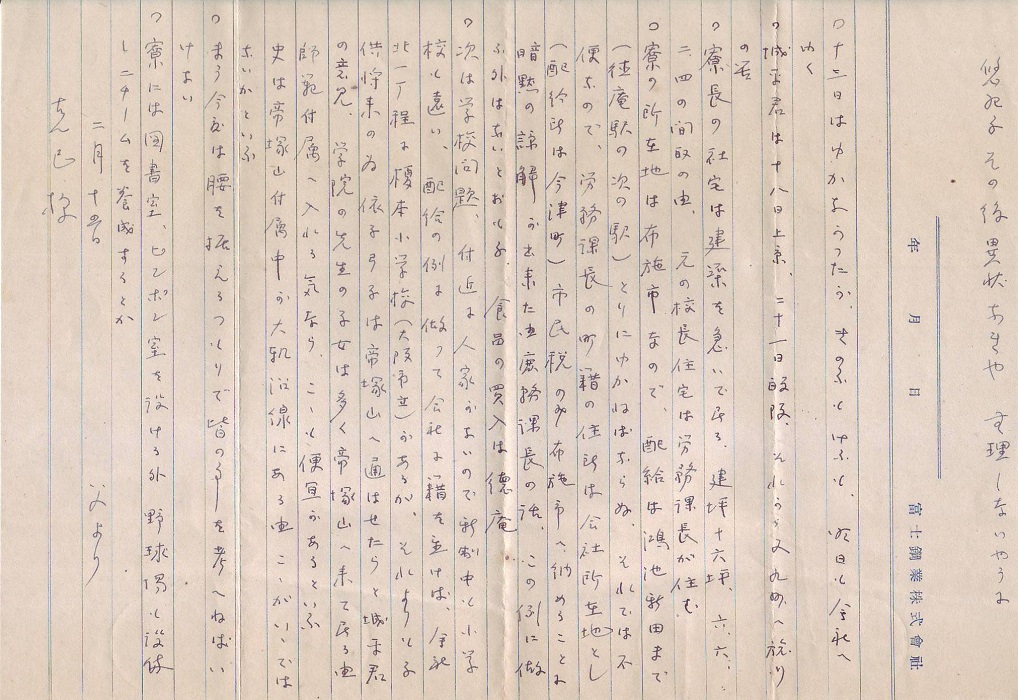 悠紀子 その後異状なきや 無理しないやうに
年 月 日 富士鋼業株式會社
○十三日はゆかなかつたが、きのふもけふも、明日も会社へ
ゆく
○城平君は十八日上京、二十一日帰阪、それから又九州へ旅行
の由
○寮長の社宅は建築を急いで居る、建坪十六坪、六、六、
二、四の間取の由、元の校長住宅は労務課長が住む
○寮の所在地は布施市なので、配給は鴻池新田まで
(徳庵駅の次の駅)とりにゆかねばならぬ、それでは不
便なので、労務課長の町籍の住所は会社所在地とし
(配給所は今津町)市民税のみ布施市へ納めることに
暗黙の諒解が出来た由庶務課長の話、この例に倣
ふ外はないとおもふ 食品の買入は徳庵
○次は学校問題、付近に人家がないので新制中も小学
校も遠い、配給の例に倣つて会社に籍を置けば、会社
北一丁程に榎本小学校(大阪市立)があるが、それよりも子
供将来の為 依子弓子は帝塚山へ通はせたらと城平君
の意見、学院の先生の子女は多く帝塚山へ来て居る由
師範付属へ入れる気なら、こゝも便宜があるといふ
史は帝塚山付属中が大軌沿線にある由 こゝがいゝでは
ないかといふ
○まう今度は腰を据えるつもりで皆の事を考へねばい
けない
○寮には図書室、ピンポン室を設ける外 野球場も設け
し 二チームを養成するとか
二月十五日 父より
克己様